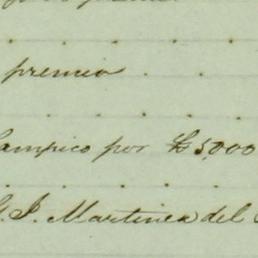 premio
ampico por $5,000
G. J. Martinez del